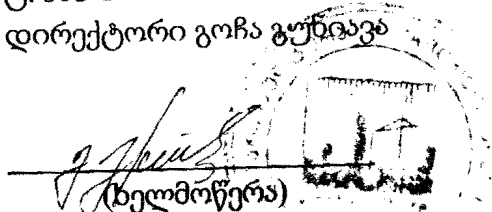 დირექტორი გოჩა გუნიავა
(ხელმოწერა)